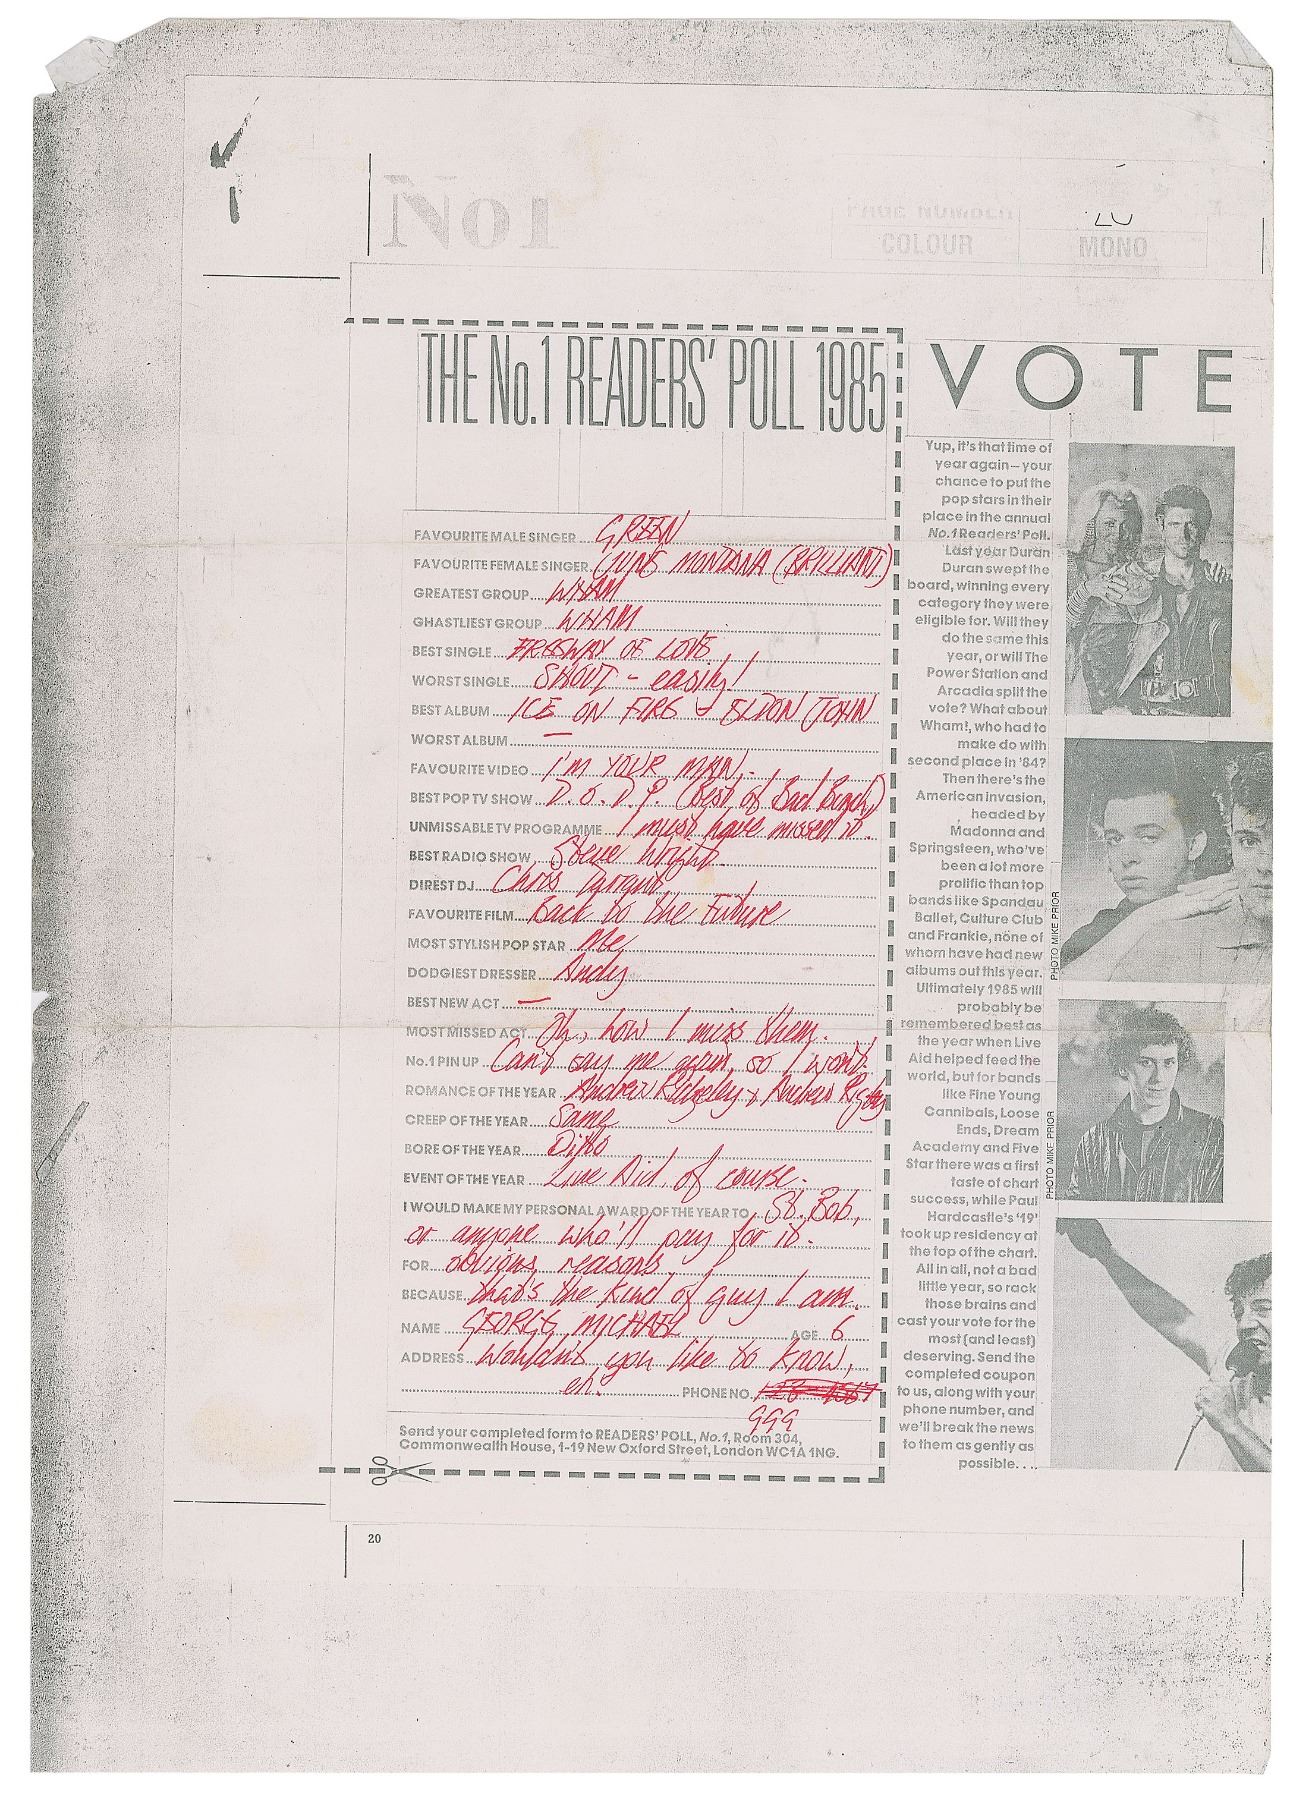 No1
PAGE NUMBER
COLOUR
MONO
THE No.1 READERS' POLL 1985
FAVOURITE MALE SINGER GREEN
FAVOURITE FEMALE SINGER JUNE MONTANA (BRILLIANT)
GREATEST GROUP WHAM
GHASTLIEST GROUP WHAM
BEST SINGLE FREEWAY OF LOVE
WORST SINGLE SHOUT - easily!
BEST ALBUM ICE ON FIRE - ELTON JOHN
WORST ALBUM —
FAVOURITE VIDEO I'M YOUR MAN.
BEST POP TV SHOW D.O.D.P. (Best of Bad Bunch)
UNMISSABLE TV PROGRAMME I must have missed it.
BEST RADIO SHOW Steve Wright.
DIREST DJ Chris Tarrant.
FAVOURITE FILM Back to the Future
MOST STYLISH POP STAR Me
DODGIEST DRESSER Andy
BEST NEW ACT —
MOST MISSED ACT Oh, how I miss them.
No.1 PIN UP Can't say me again, so I won't.
ROMANCE OF THE YEAR Andrew Ridgeley + Andrew Ridgeley
CREEP OF THE YEAR Same
BORE OF THE YEAR Ditto
EVENT OF THE YEAR Live Aid, of course.
I WOULD MAKE MY PERSONAL AWARD OF THE YEAR TO St. Bob,
or anyone who'll pay for it.
FOR obvious reasons
BECAUSE that's the kind of guy I am.
NAME GEORGE MICHAEL AGE 6
ADDRESS Wouldn't you like to know,
eh? PHONE NO. 123 4567
999
Send your completed form to READERS' POLL, No.1, Room 304,
Commonwealth House, 1-19 New Oxford Street, London WC1A 1NG.
20
VOTE
Yup, it's that time of
year again – your
chance to put the
pop stars in their
place in the annual
No.1 Readers' Poll.
Last year Duran
Duran swept the
board, winning every
category they were
eligible for. Will they
do the same this
year, or will The
Power Station and
Arcadia split the
vote? What about
Wham!, who had to
make do with
second place in '84?
Then there's the
American invasion,
headed by
Madonna and
Springsteen, who've
been a lot more
prolific than top
bands like Spandau
Ballet, Culture Club
and Frankie, none of
whom have had new
albums out this year.
Ultimately 1985 will
probably be
remembered best as
the year when Live
Aid helped feed the
world, but for bands
like Fine Young
Cannibals, Loose
Ends, Dream
Academy and Five
Star there was a first
taste of chart
success, while Paul
Hardcastle's '19'
took up residency at
the top of the chart.
All in all, not a bad
little year, so rack
those brains and
cast your vote for the
most (and least)
deserving. Send the
completed coupon
to us, along with your
phone number, and
we'll break the news
to them as gently as
possible. . . .
PHOTO MIKE PRIOR
PHOTO MIKE PRIOR